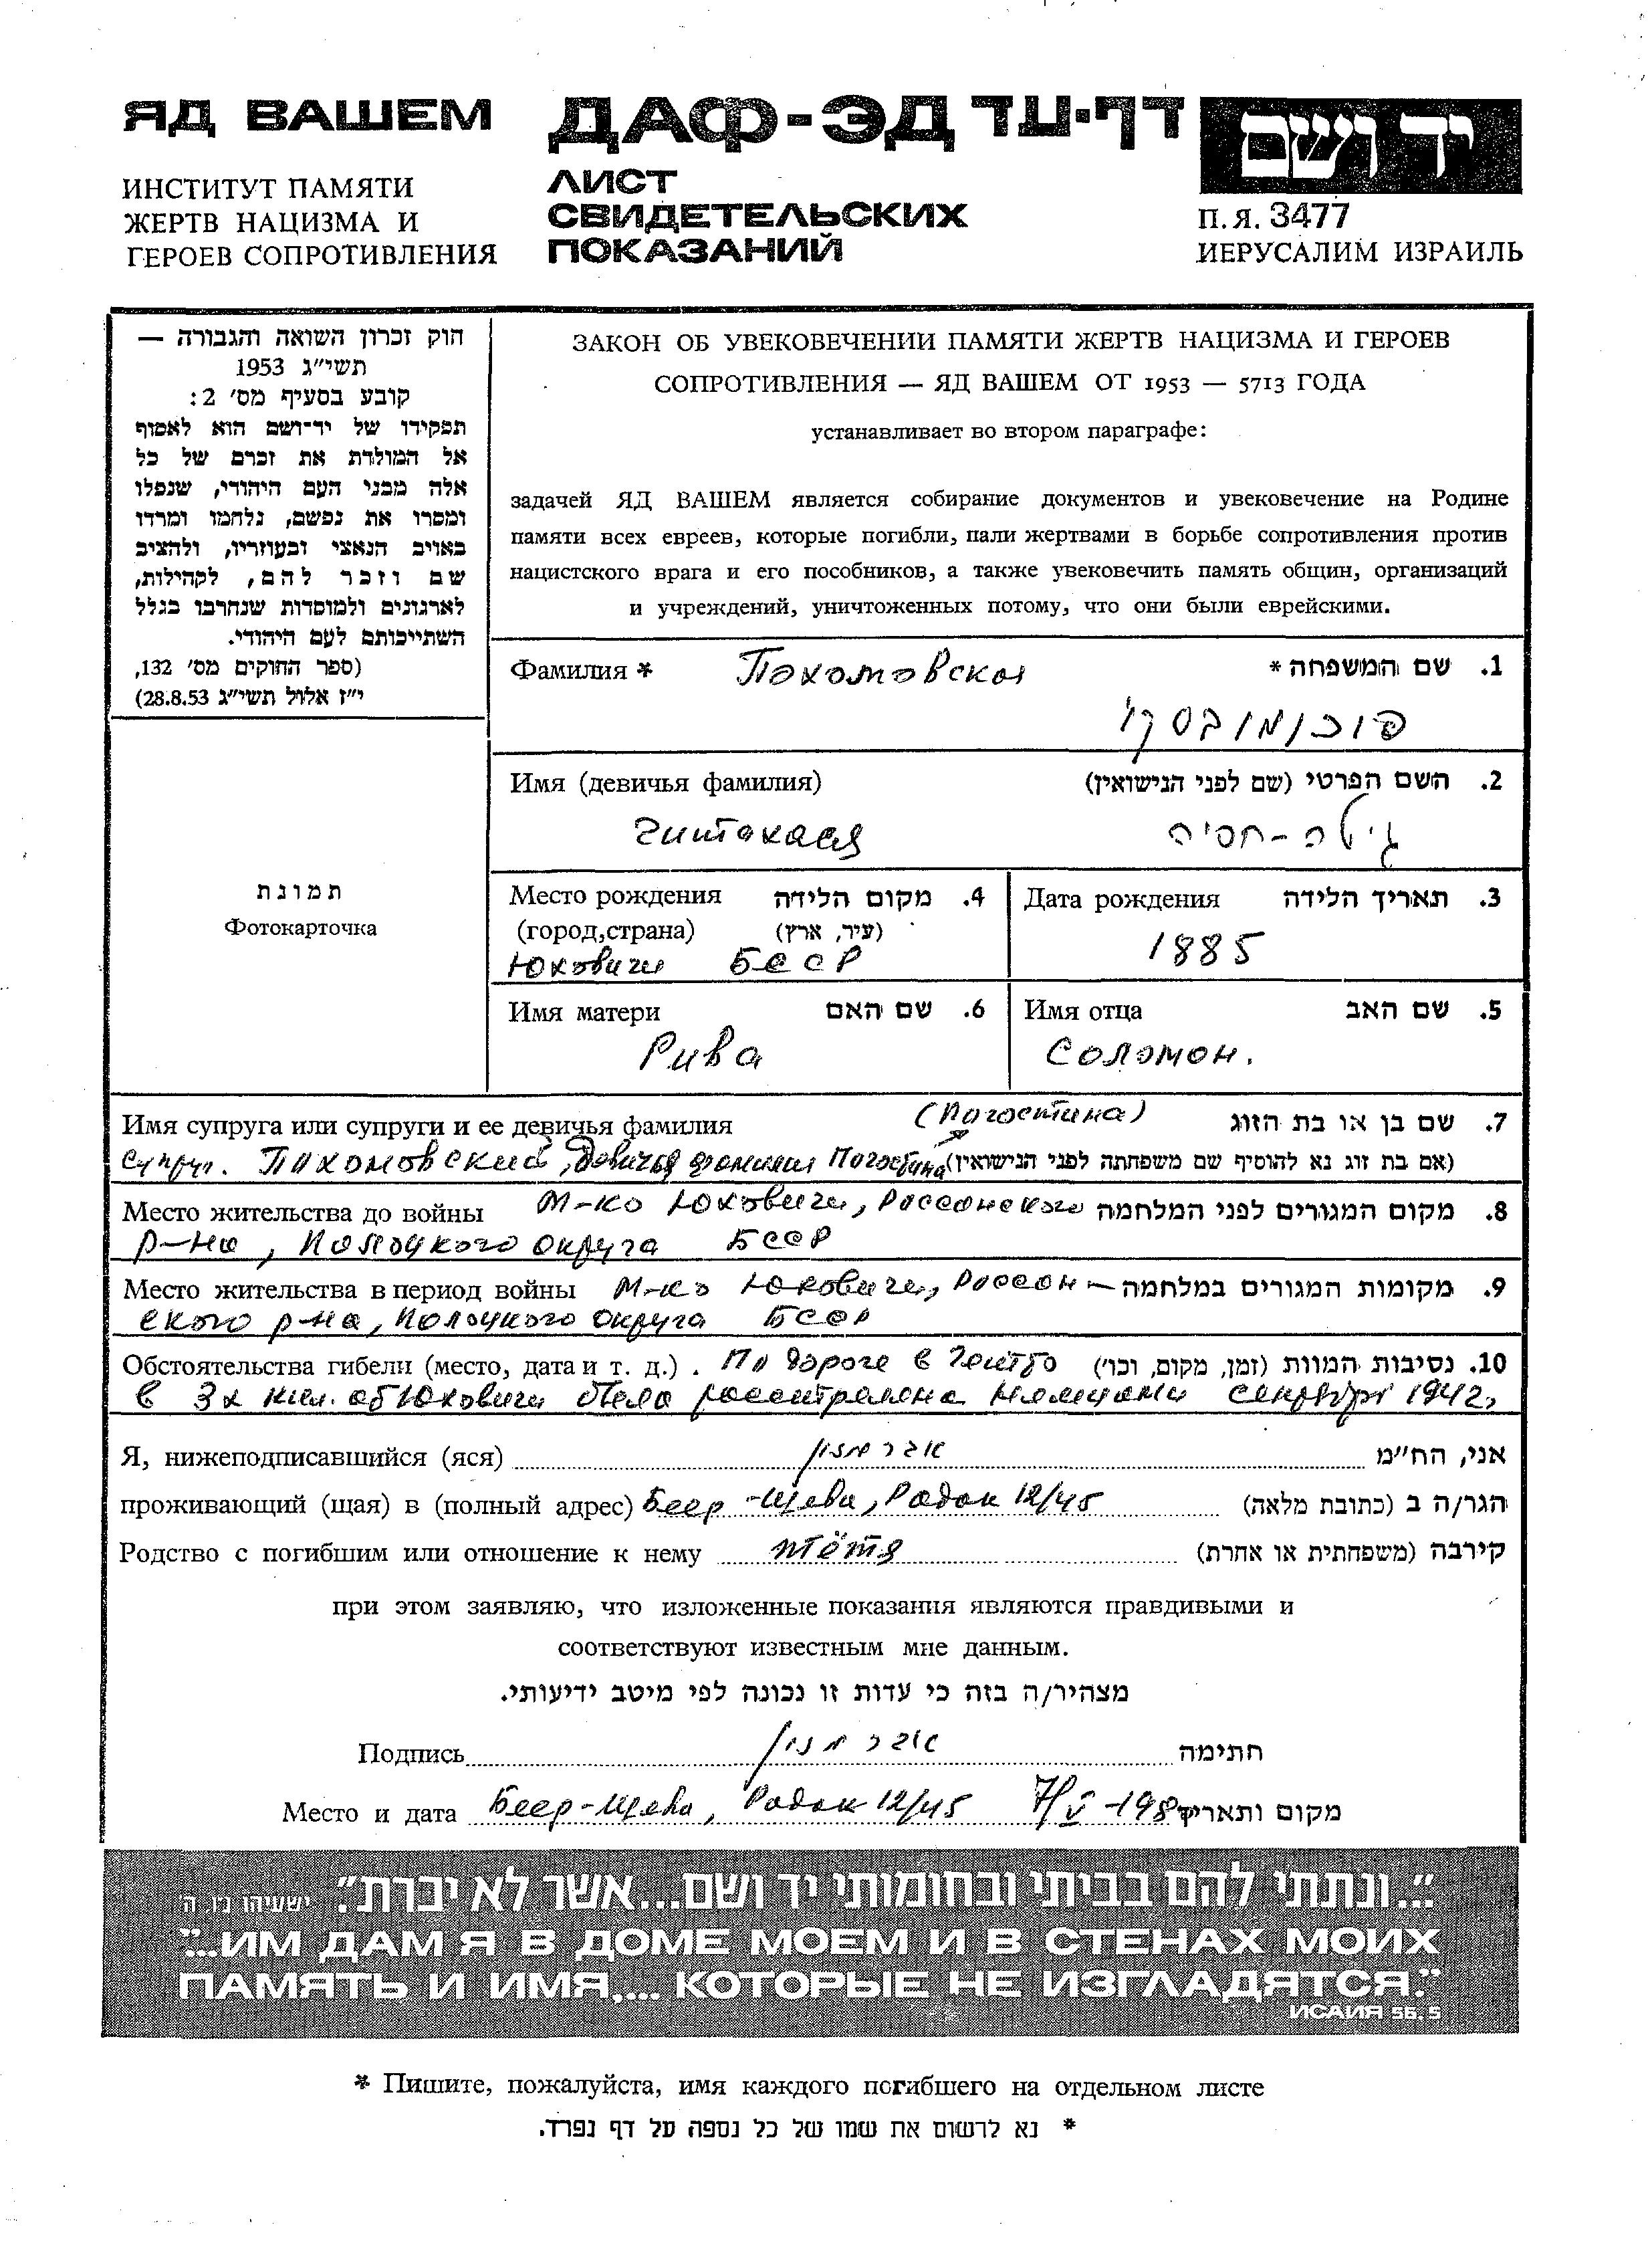 ЯД ВАШЕМ
ИНСТИТУТ ПАМЯТИ
ЖЕРТВ НАЦИЗМА И
ГЕРОЕВ СОПРОТИВЛЕНИЯ
ДАФ-ЭД דף-עד
ЛИСТ
СВИДЕТЕЛЬСКИХ
ПОКАЗАНИЙ
יד ושם
П.Я. 3477
ИЕРУСАЛИМ ИЗРАИЛЬ
חוק זכרון השואה והגבורה —
תשי״ג 1953
קובע בסעיף מס׳ 2:
תפקידו של יד־ושם הוא לאסוף
אל המולדת את זכרם של כל
אלה מבני העם היהודי, שנפלו
ומסרו את נפשם, נלחמו ומרדו
באויב הנאצי ובעוזריו, ולהציב
שם וזכר להם, לקהילות,
לארגונים ולמוסדות שנחרבו בגלל
השתייכותם לעם היהודי.
(ספר החוקים מס׳ 132,
י״ז אלול תשי״ג 28.8.53)
ЗАКОН ОБ УВЕКОВЕЧЕНИИ ПАМЯТИ ЖЕРТВ НАЦИЗМА И ГЕРОЕВ
СОПРОТИВЛЕНИЯ — ЯД ВАШЕМ ОТ 1953 — 5713 ГОДА
устанавливает во втором параграфе:
задачей ЯД ВАШЕМ является собирание документов и увековечение на Родине
памяти всех евреев, которые погибли, пали жертвами в борьбе сопротивления против
нацистского врага и его пособников, а также увековечить память общин, организаций
и учреждений, уничтоженных потому, что они были еврейскими.
Фамилия * Похомовская 1. שם המשפחה *
פוכומובסקי
Имя (девичья фамилия) 2. השם הפרטי (שם לפני הנישואין)
Гитахася גיטה-חסיה
תמונת
Фотокарточка
Место рождения 4. מקום הלידה
(город,страна) (עיר, ארץ)
Юховичи БССР
Дата рождения 3. תאריך הלידה
1885
Имя матери 6. שם האם
Рива
Имя отца 5. שם האב
Соломон.
(Погостина)
Имя супруга или супруги и ее девичья фамилия 7. שם בן או בת הזוג
супруг. Пахомовский, девичья фамилия Погостина (אם בת זוג נא להוסיף שם משפחתה לפני הנישואין)
Место жительства до войны М-ко Юховичи, Россонского 8. מקום המגורים לפני המלחמה
р-на, Полоцкого округа БССР
Место жительства в период войны М-ко Юховичи, Россон- 9. מקומות המגורים במלחמה
ского р-на, Полоцкого округа БССР
Обстоятельства гибели (место, дата и т. д.). По дороге в Гетто 10. נסיבות המוות (זמן, מקום, וכו׳)
в 3х кил. от Юховичи была расстреляна немцами сентябрь 1942г
Я, нижеподписавшийся (яся) אני, הח״מ
проживающий (щая) в (полный адрес) Беер-Шева, Радак 12/45 הגר/ה ב (כתובת מלאה)
Родство с погибшим или отношение к нему тётя קירבה (משפחתית או אחרת)
при этом заявляю, что изложенные показания являются правдивыми и
соответствуют известным мне данным.
מצהיר/ה בזה כי עדות זו נכונה לפי מיטב ידיעותי.
Подпись חתימה
Место и дата Беер-Шева, Радак 12/45 מקום ותאריך
״...ונתתי להם בביתי ובחומותי יד ושם...אשר לא יכרת״. ישעיהו נ״ו, ה׳
"...ИМ ДАМ Я В ДОМЕ МОЕМ И В СТЕНАХ МОИХ
ПАМЯТЬ И ИМЯ,... КОТОРЫЕ НЕ ИЗГЛАДЯТСЯ."
ИСАИЯ 56, 5
* Пишите, пожалуйста, имя каждого погибшего на отдельном листе
* נא לרשום את שמו של כל נספה על דף נפרד.